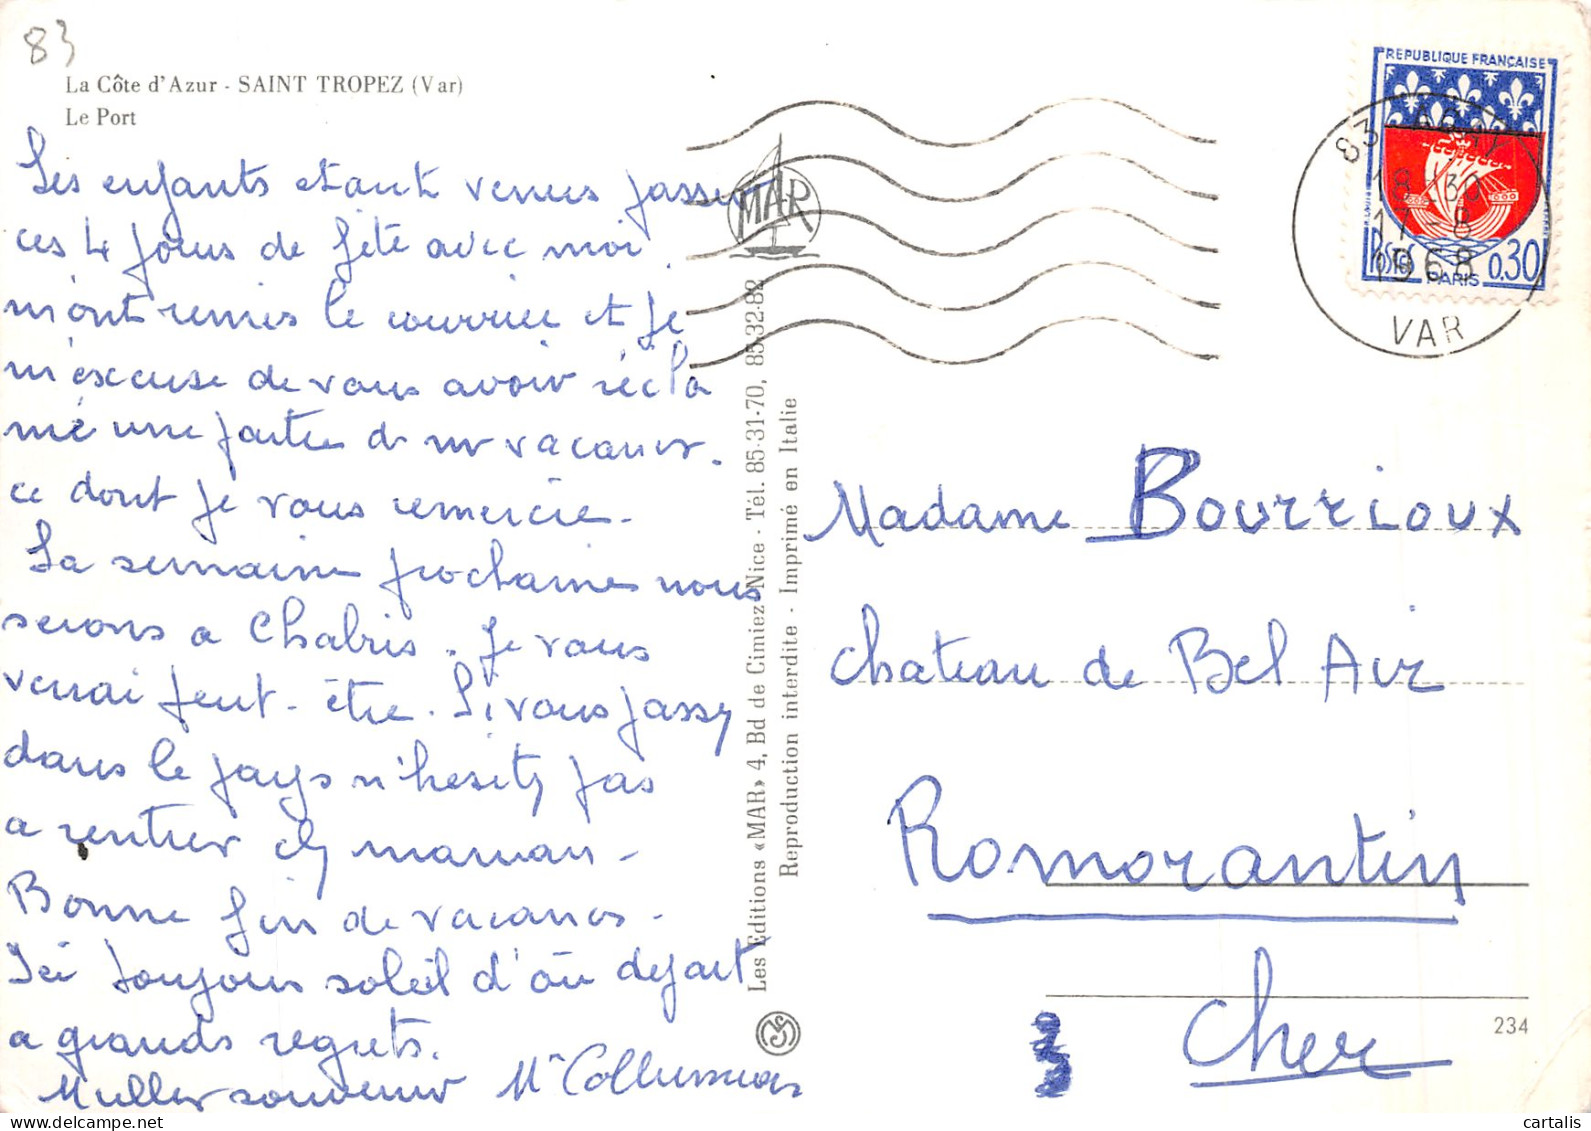 83
La Côte d'Azur - SAINT TROPEZ (Var)
Le Port
Les enfants etant venus passer
ces 4 jours de fête avec moi
m'ont remis le courrier et je
m'excuse de vous avoir récla
mé une partie de vacances.
ce dont je vous remercie.
La semaine prochaine nous
serons a Chabris. Je vous
verrai peut-être. Si vous passez
dans le pays n'hesitez pas
a rentrer chez maman.
Bonne fin de vacances.
Ici toujours soleil d'où depart
a grands regrets.
Meilleur souvenir
MAR
Les Editions «MAR» 4, Bd de Cimiez - Nice - Tél. 85-31-70, 85-32-82
Reproduction interdite - Imprimé en Italie
REPUBLIQUE FRANÇAISE
POSTES
PARIS
0,30
83 AGAY
18 H30
17 - 8
1968
VAR
Madame Bourrioux
chateau de Bel Air
Romorantin
Cher
234
cartalis